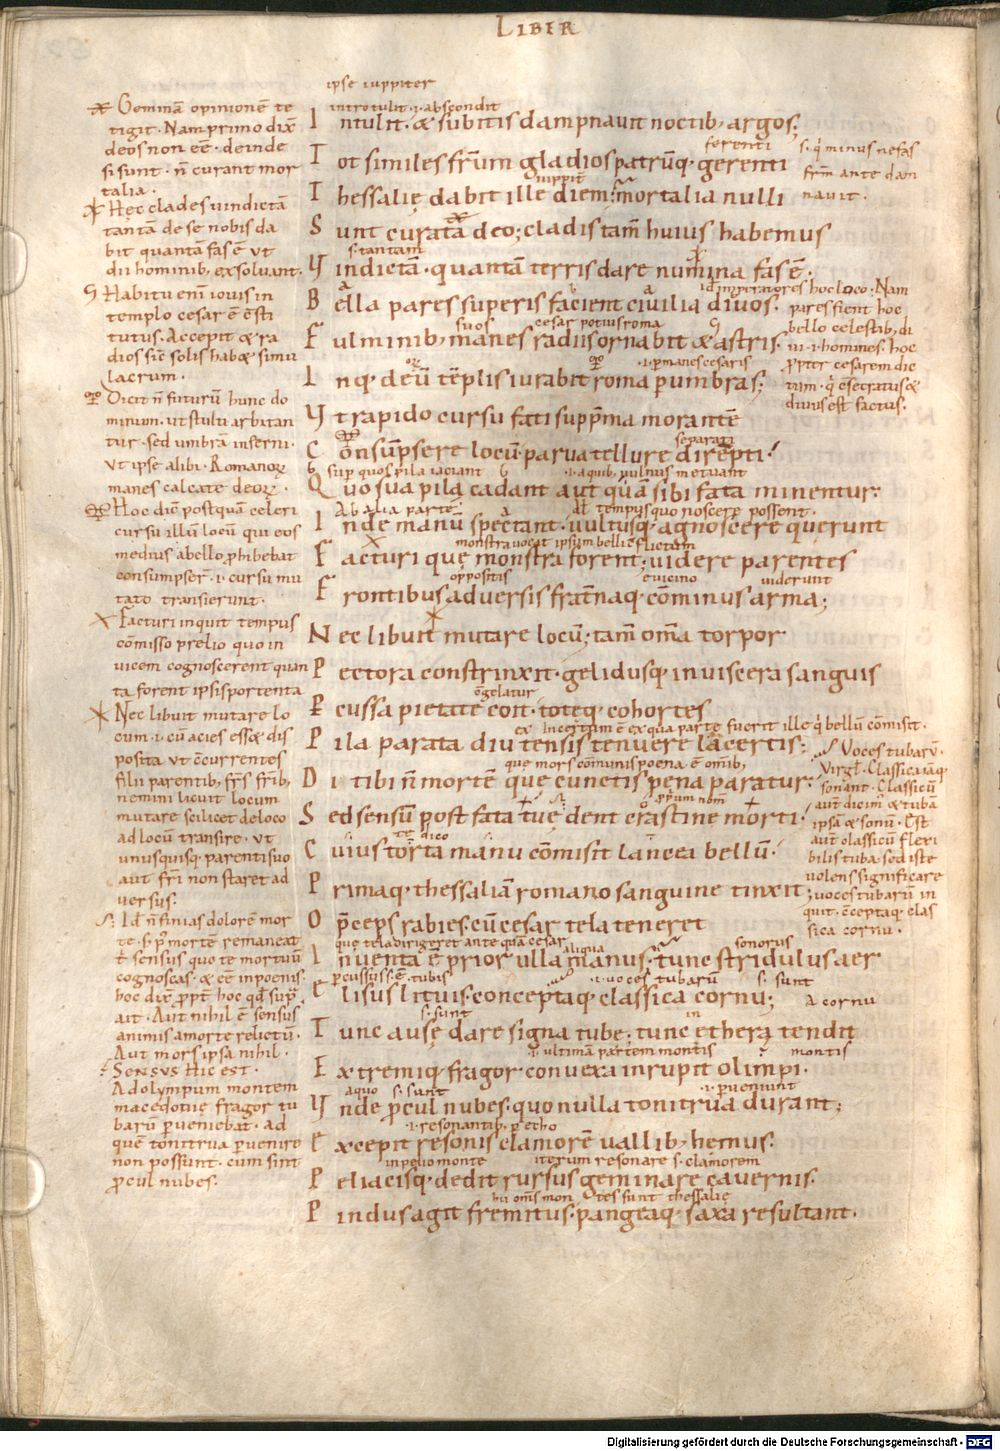 LIBER
ipse iuppiter
introtulit · i · abscondit
Intulit · & subitis dampnauit noctib; argos;
ferenti
Tot similes frm̄ gladios patrūq; gerenti
iuppit̄
Thessalię dabit ille diem; mortalia nulli
Sunt curata deo; cladis tam̄ huius habemus
s · tantam
Vindictā · quantā terris dare numina fas ē ·
Bella pares superis facient ciuilia diuos ·
suos cesar potius roma
Fulminib; manes radiisq; ornabit & astris ·
· i · p̄ manes cesaris
Inq; deū tēplis iurabit roma p̄ umbras;
Vt rapido cursu fati supp̄ma morantē
separati
Consūpsere locū · parua tellure dirēpti ·
sup̄ quos pila iaciant · i · a quib; uulnus metuant
Quo sua pila cadant aut quā sibi fata minentur ·
Ab alia parte qd̄ tempus quo noscere possent ·
Inde manū spectant · uultusq; agnoscere querunt
monstra uocat ipsum belli cflictum
Facturi quę monstra forent; uidere parentes
oppositis e uicino uiderunt
Frontibus aduersis frat̄naq; cōminus arma;
Nec libuit mutare locū; tam̄ om̄a torpor
Pectora constrinxit · gelidusq; in uiscera sanguis
cgelatur
Pcussa pietate coit · toteq; cohortes
Incertum ē ex qua parte fuerit ille q̇ bellū cōmisit ·
Pila parata diu tensis tenuere lacertis;
quę mors cōmunis poena ē omib;
Di tibi n̄ mortē quę cunctis pęna paratur ·
p̄prium nom̄
Sed sensū post fata tuę dent crastine morti ·
dico
Cuius torta manu cōmisit lancea bellū ·
Primaq; thessaliā romano sanguine tinxit;
O p̄ceps rabies · cū cesar tela teneret
quę tela dirigeret ante quā cesar aliqua sonorus
Inuenta ē prior ulla manus · tunc stridulus aer
p̄cussus · ē · tubis · i · uoces tubarū s · sunt
Elisus lituis · conceptaq; classica cornu;
s · sunt in
Tunc ausę dare signa tubę · tunc ethera tendit
· i · ultimam partem montis montis
Extremiq; fragor · conuexa inrupit olimpi ·
a quo s · sunt · i · p̄ueniunt
Vnde p̄cul nubes · quo nulla tonitrua durant;
· i · resonantib; p̄ echo
Excepit resonis clamorē uallib; hemus ·
in pelio monte iterum resonare s · clamorem
Peliacisq; dedit rursus geminare cauernis ·
hii om̄s montes sunt thessalię
Pindus agit fremitus · pangeaq; saxa resultant ·
Geminā opinionē te
tigit · Nam primo dix̄
deos non eē · deinde
si sunt · n̄ curant mor
talia ·
Hęc clades uindictā
tantā de se nobis da
bit quantā fas ē ut
dii hominib; exsoluant ·
Habitu enī iouis in
templo cesar ē csti
tutus · Accepit & ra
dios sic solis hab& simu
lacrum ·
Dicit n̄ futurū hunc do
minum · ut stulti arbitan
tur · sed umbrā inferni ·
ut ipse alibi · Romanoꝝ
manes calcate deoꝝ ·
Hoc diē postquā celeri
cursu illū locū qui eos
medius a bello p̄hibebat
consumpser̄ · i · cursu mu
tato transierunt ·
Facturi inquit tempus
cōmisso prelio quo in
uicem cognoscerent quan
ta forent ipsis portenta
Nec libuit mutare lo
cum · i · cū acies ess& dis
posita ut c̄currentes
filii parentib; frs̄ frīb;
nemini licuit locum
mutare scilicet de loco
ad locū transire · ut
unusquisq; parenti suo
aut fr̄i non staret ad
uersus ·
Id n̄ finias dolorē mor
te · s · p̄ mortē remaneat
t̄ sensus quo te mortuū
cognoscas · & eē in poenis ·
hoc dix̄ p̄pt̄ hoc qd̄ sup̄
ait · Aut nihil ē sensus
animis a morte relictū ·
Aut mors ipsa nihil ·
SENSUS HIC EST ·
Ad olympum montem
macedonię fragor tu
barū p̄ueniebat · ad
quē tonitrua p̄uenire
non possunt · cum sint
p̄cul nubes ·
s · q̇ minus nefas
frm̄ ante dam
nauit ·
id imperatores hoc loco · Nam
pares fient hoc
bello celestib; di
ui · i · homines · hoc
p̄pter cesarem die
tum · q̇ csecratus &
diuus est factus ·
Voces tubarū ·
Virgl̄ · Classica iaq;
sonant · Classicū
aut̄ dicim̄ & tubā
ipsā & sonū · Est
aut̄ classicū flexi
bilis tuba · sed iste
uolens significare
uoces tubarū in
quit · cceptaq; clas
sica cornu ·
A cornu
Digitalisierung gefördert durch die Deutsche Forschungsgemeinschaft · DFG